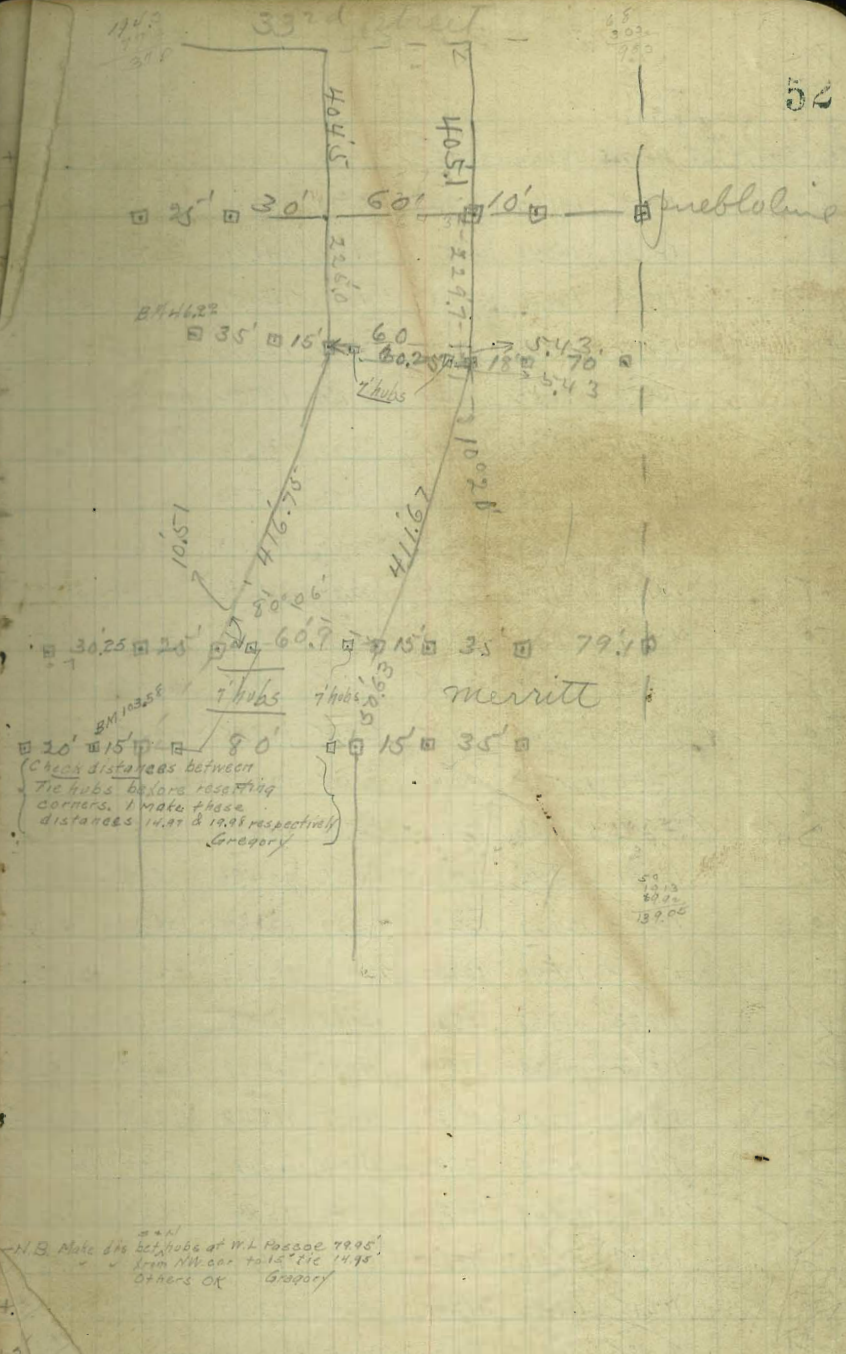 33rd Street
52
404.5
405.1
25' 30' 60' 10' puebloline
226.0
229.7
BM 46.22
35' 15' 60 5.43
60.25 18' 70'
5.43
7' hubs
10°20'
416.75'
411.67
10.51
80°06'
30.25 25' 60.9 15' 35' 79.1
7' hubs 7' hubs 50.63 merritt
BM 103.58
20' 15' 80' 15' 35'
Check distances between
Tie hubs before resetting
corners. I make these
distances 14.97 & 19.98 respectively
Gregory
139.05
N.B. Make dis bet hubs at W.L Pascoe 79.95'
" " from NW cor to 15' tie 14.95'
Others OK Gregory